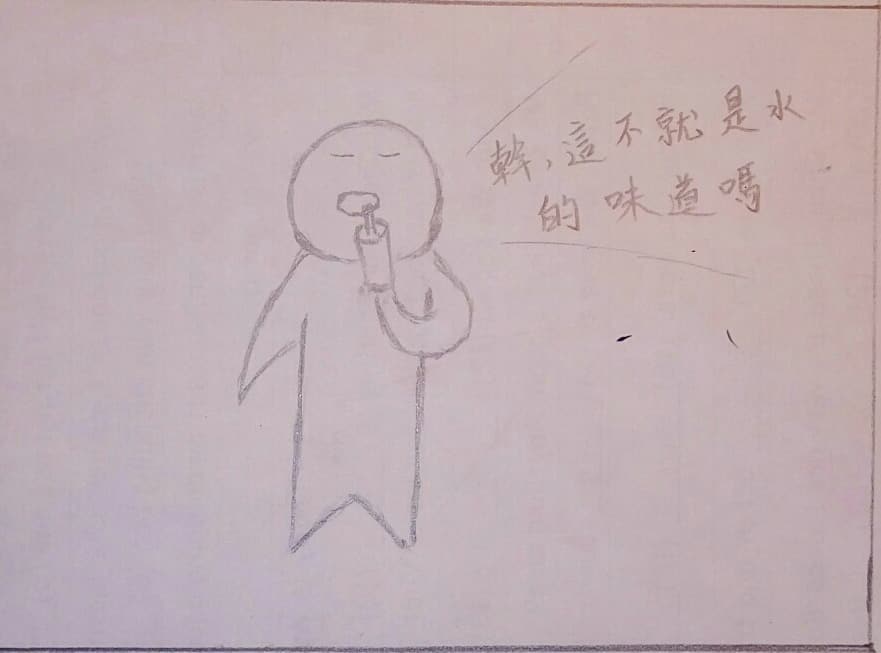 幹,這不就是水
的味道嗎